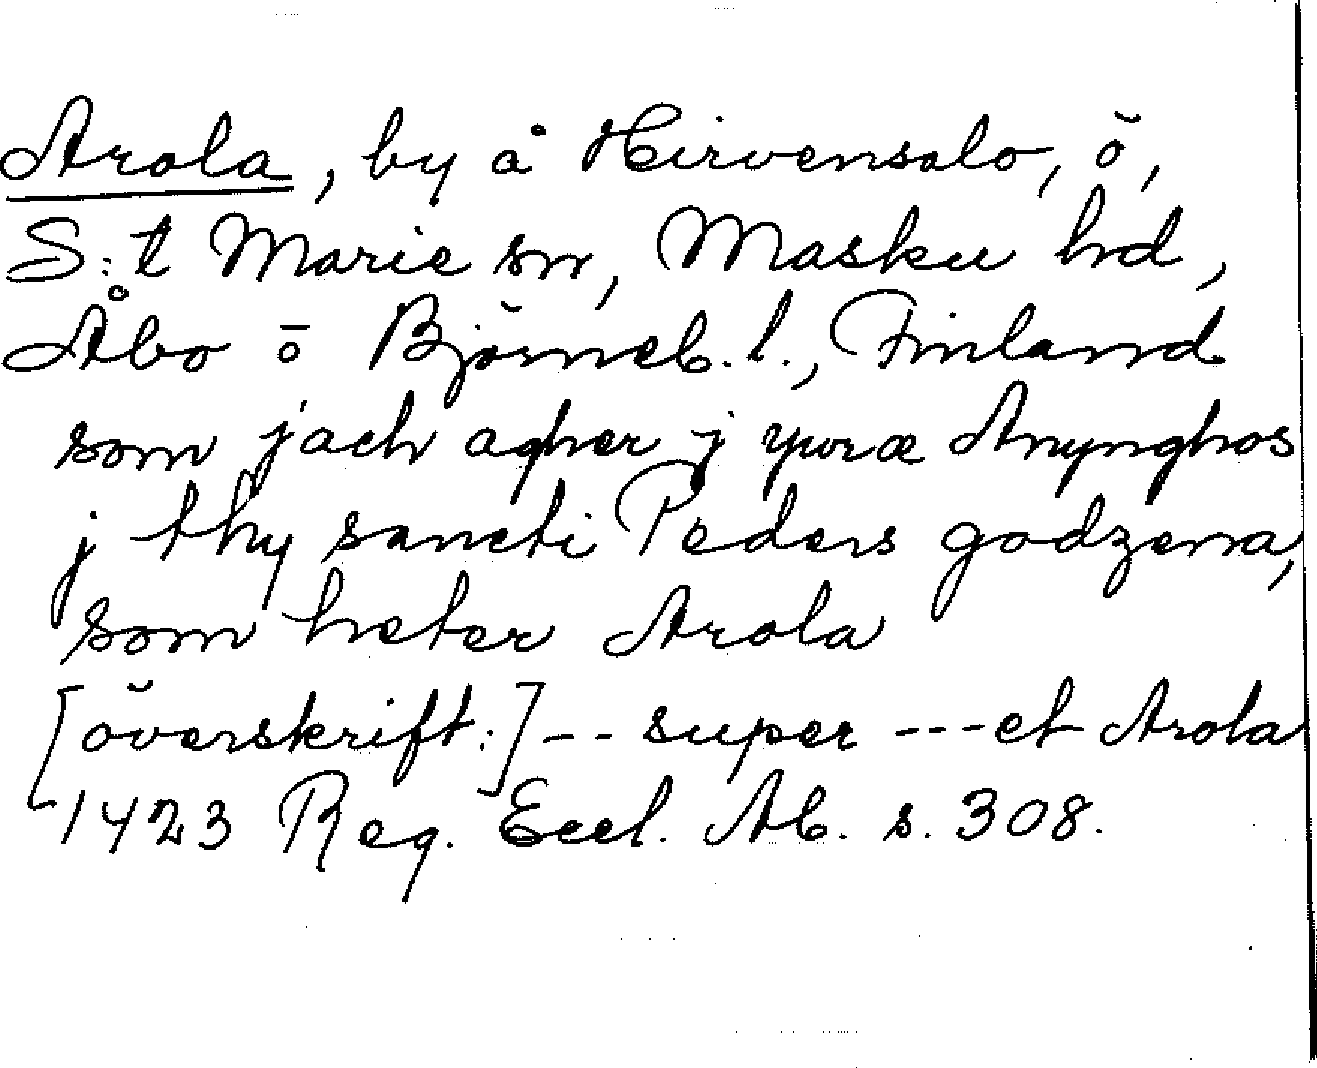 Arola, by å Hirvensalo, ö,
S:t Marie sn, Masku hd,
Åbo o Björneb. l., Finland
som jach agher j yvræ Anynghos
j thy sancti Peders godzena,
som heter Arola
[överskrift:] -- super --- et Arola
1423 Reg. Eccl. Ab. s. 308.